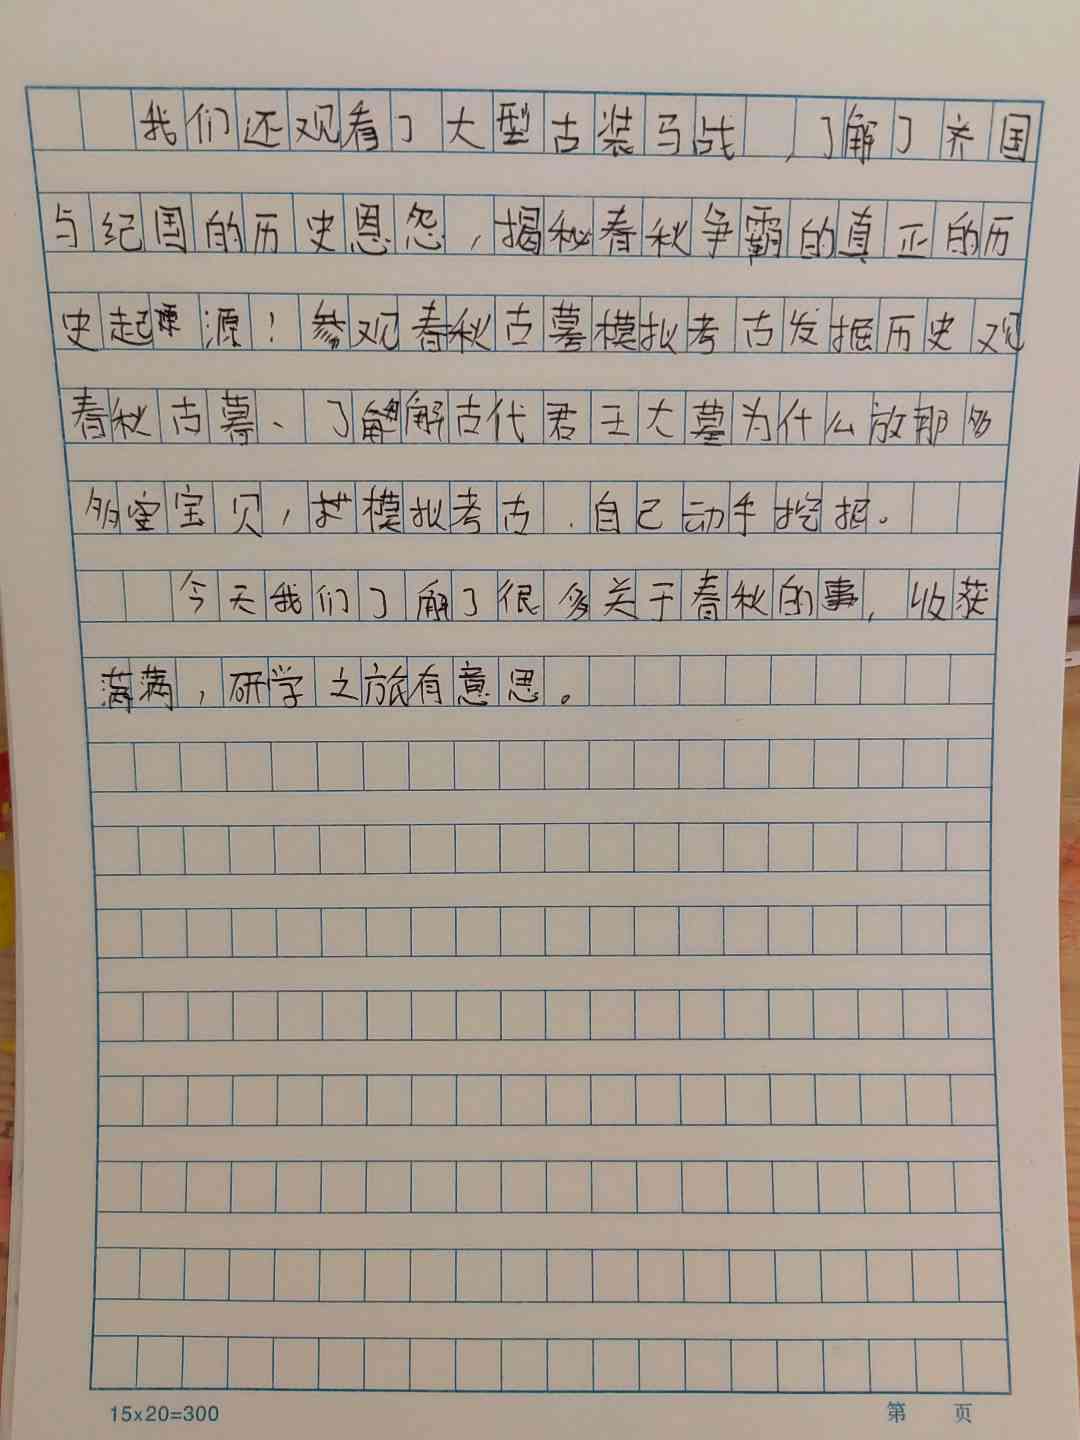 我们还观看了大型古装马战，了解了齐国
与纪国的历史恩怨，揭秘春秋争霸的真正的历
史起源！参观春秋古墓模拟考古发掘历史观
春秋古墓、了解古代君王大墓为什么放那多
多宝贝，模拟考古．自己动手挖掘。
今天我们了解了很多关于春秋的事，收获
满满，研学之旅有意思。
15x20=300
第 页